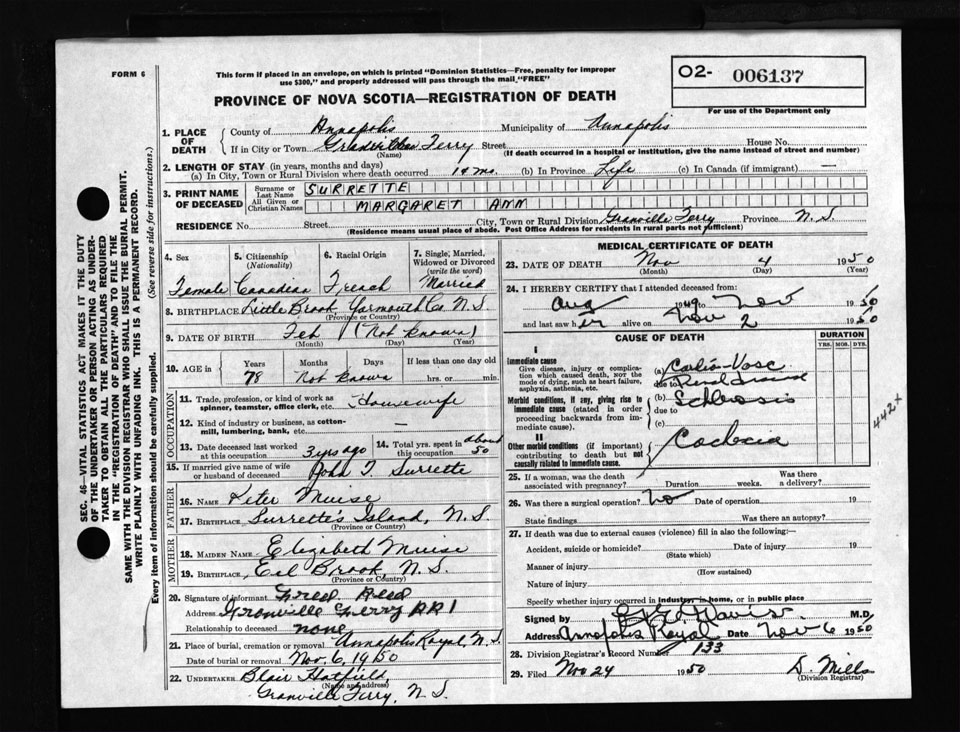 FORM 6
This form if placed in an envelope, on which is printed "Dominion Statistics—Free, penalty for improper
use $300," and properly addressed will pass through the mail "FREE"
PROVINCE OF NOVA SCOTIA—REGISTRATION OF DEATH
O2- 006137
For use of the Department only
1. PLACE OF DEATH
County of Annapolis Municipality of Annapolis
If in City or Town Granville Ferry Street House No.
(Name) (If death occurred in a hospital or institution, give the name instead of street and number)
2. LENGTH OF STAY (in years, months and days)
(a) In City, Town or Rural Division where death occurred 14 mo. (b) In Province Life (c) In Canada (if immigrant) —
3. PRINT NAME OF DECEASED
Surname or Last Name SURRETTE
All Given or Christian Names MARGARET ANN
RESIDENCE No. Street City, Town or Rural Division Granville Ferry Province N.S.
(Residence means usual place of abode. Post Office Address for residents in rural parts not sufficient)
4. Sex Female
5. Citizenship (Nationality) Canadian
6. Racial Origin French
7. Single, Married, Widowed or Divorced (write the word) Married
8. BIRTHPLACE Little Brook Yarmouth Co. N.S.
(Province or Country)
9. DATE OF BIRTH Feb (Not known)
(Month) (Day) (Year)
10. AGE in Years 78 Months Not known Days If less than one day old hrs. or min.
OCCUPATION
11. Trade, profession, or kind of work as spinner, teamster, office clerk, etc. Housewife
12. Kind of industry or business, as cotton-mill, lumbering, bank, etc. —
13. Date deceased last worked at this occupation 3 yrs ago
14. Total yrs. spent in this occupation about 50
15. If married give name of wife or husband of deceased John T Surrette
FATHER
16. NAME Peter Muise
17. BIRTHPLACE Surrette's Island, N.S.
(Province or Country)
MOTHER
18. MAIDEN NAME Elizabeth Muise
19. BIRTHPLACE Eel Brook N.S.
(Province or Country)
20. Signature of informant Fred Reed
Address Granville Ferry RR 1
Relationship to deceased none
21. Place of burial, cremation or removal Annapolis Royal, N.S.
Date of burial or removal Nov. 6, 1950
22. UNDERTAKER Blair Hatfield
(Name and address)
Granville Ferry, N.S.
MEDICAL CERTIFICATE OF DEATH
23. DATE OF DEATH Nov 4 1950
(Month) (Day) (Year)
24. I HEREBY CERTIFY that I attended deceased from:
Aug 1949 to Nov 1950
and last saw her alive on Nov 2 1950
CAUSE OF DEATH
DURATION
YRS. MOS. DYS.
I
Immediate cause
Give disease, injury or complication which caused death, not the mode of dying, such as heart failure, asphyxia, asthenia, etc.
(a) Cardio-Vasc
due to Renal disease
Morbid conditions, if any, giving rise to immediate cause (stated in order proceeding backwards from immediate cause).
(b) Sclerosis
due to
(c)
II
Other morbid conditions (if important) contributing to death but not causally related to immediate cause.
442+
25. If a woman, was the death associated with pregnancy? Duration weeks. Was there a delivery?
26. Was there a surgical operation? No Date of operation 19
State findings Was there an autopsy?
27. If death was due to external causes (violence) fill in also the following:—
Accident, suicide or homicide? Date of injury 19
(State which)
Manner of injury
(How sustained)
Nature of injury
Specify whether injury occurred in industry, in home, or in public place
Signed by Davis M.D.
Address Annapolis Royal Date Nov 6 1950
28. Division Registrar's Record Number 133
29. Filed Nov 24 1950 D. Mills
(Division Registrar)
SEC. 46—VITAL STATISTICS ACT MAKES IT THE DUTY
OF THE UNDERTAKER OR PERSON ACTING AS UNDER-
TAKER TO OBTAIN ALL THE PARTICULARS REQUIRED
IN THE "REGISTRATION OF DEATH" AND TO FILE THE
SAME WITH THE DIVISION REGISTRAR WHO SHALL ISSUE THE BURIAL PERMIT.
WRITE PLAINLY WITH UNFADING INK. THIS IS A PERMANENT RECORD.
Every item of information should be carefully supplied. (See reverse side for instructions.)